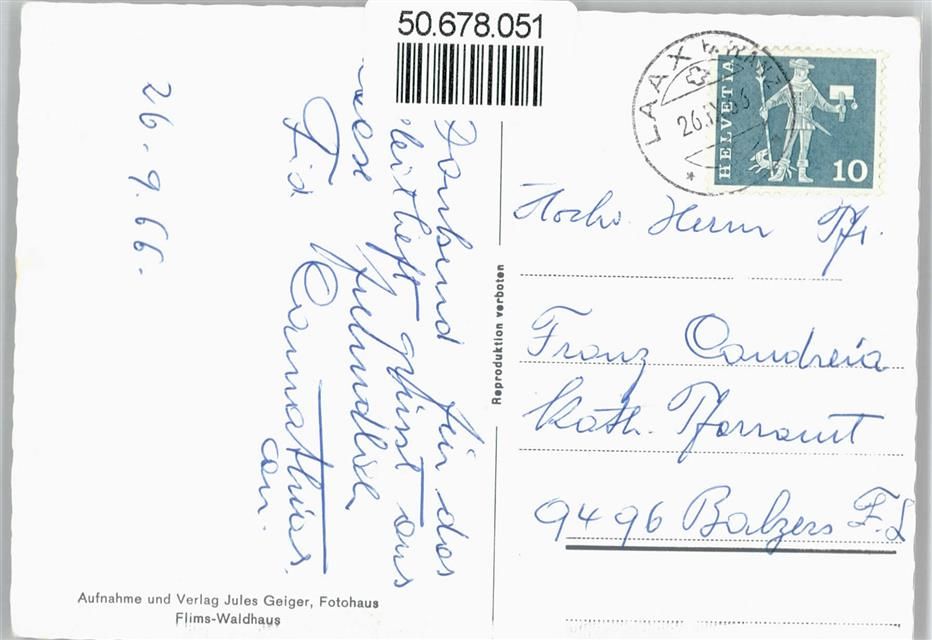 50.678.051
LAAX b. ILANZ
26.IX.66
HELVETIA
10
26. 9. 66.
Dankend für das
grüsst aus
freundlich
Fid. Carmathias.
can.
Reproduktion verboten
Hochw. Herrn Pfr.
Franz Candreia
Kath. Pfarramt
9496 Balzers F.L
Aufnahme und Verlag Jules Geiger, Fotohaus
Flims-Waldhaus